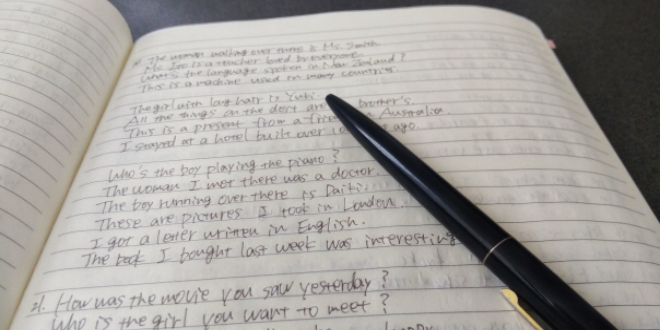 The woman walking over there is Ms. Smith.
Mr. Ito is a teacher loved by everyone.
What's the language spoken in New Zealand?
This is a machine used in many countries.
The girl with long hair is Yuki.
All the things on the desk are brother's.
This is a present from a in Australia.
I stayed at a hotel built over ago.
Who's the boy playing the piano?
The woman I met there was a doctor.
The boy running over there is Daiki.
These are pictures I took in London.
I got a letter written in English.
The book I bought last week was interesting
21. How was the movie you saw yesterday?
Who is the girl you want to meet?